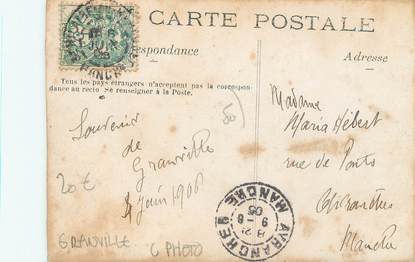 CARTE POSTALE
Correspondance
Adresse
Tous les pays étrangers n'acceptent pas la correspon-
dance au recto (Se renseigner à la Poste.
Souvenir
de
Granville
4 Juin 1906
20 €
GRANVILLE
6 PHOTO
Madame
Maria Hébert
rue de Ponts
Avranches
Manche
AVRANCHES
MANCHE